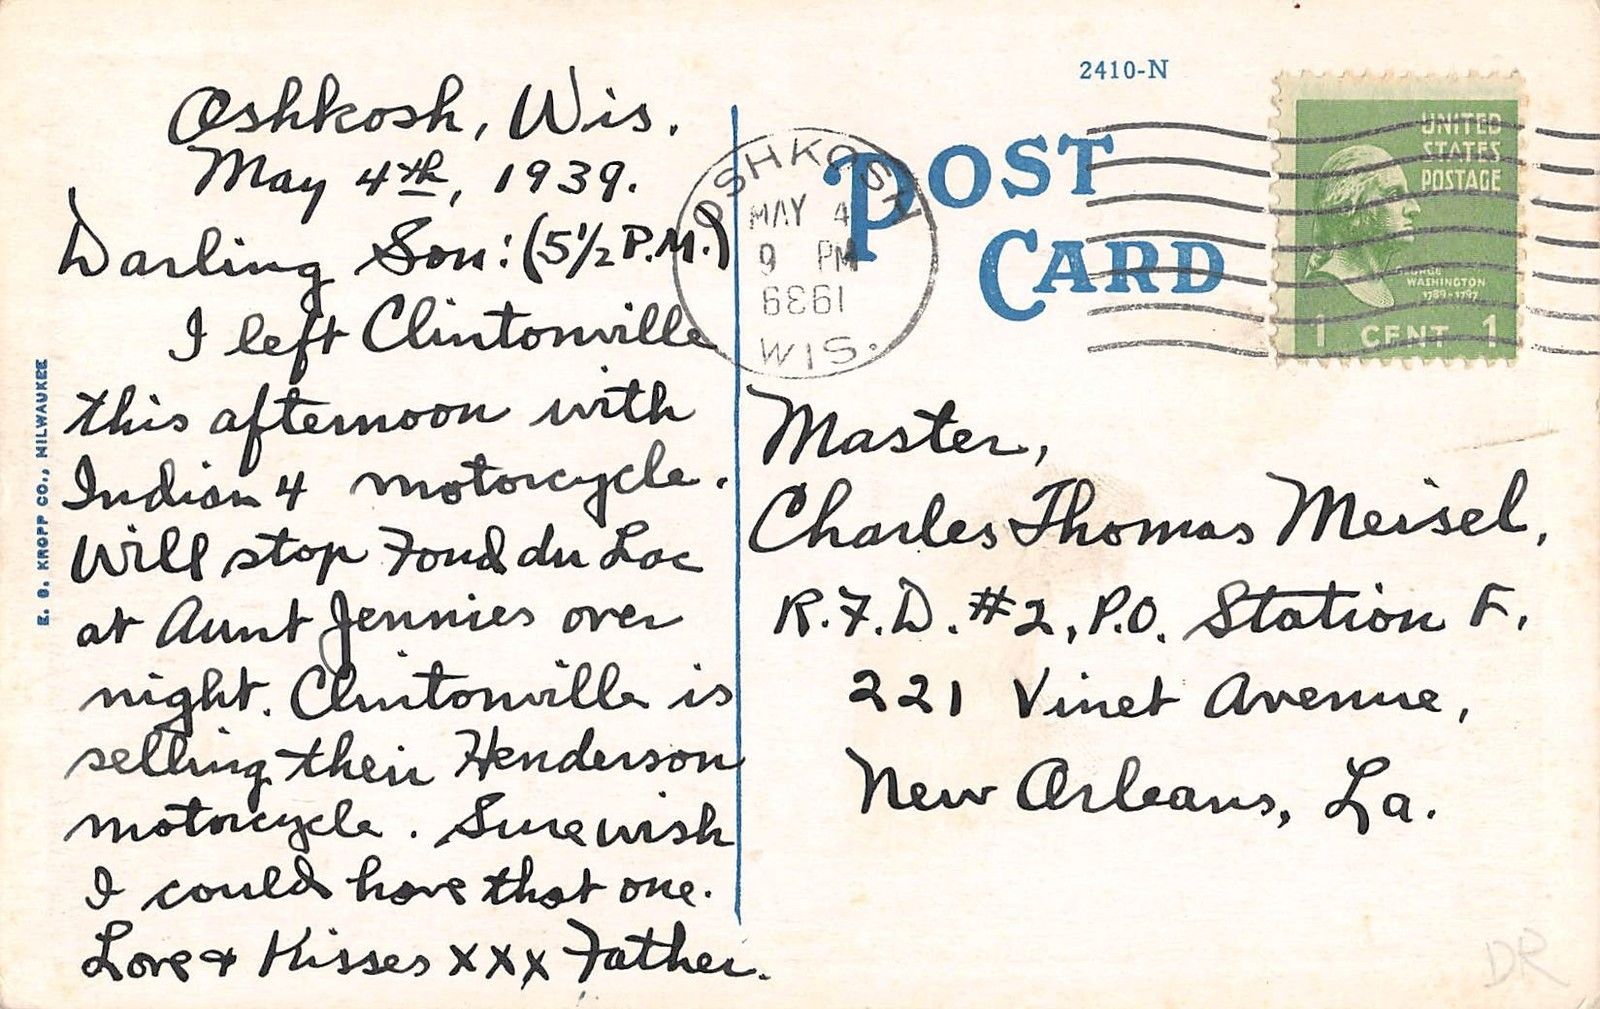 Oshkosh, Wis.
May 4th, 1939.
Darling Son: (5½ P.M.)
I left Clintonville
this afternoon with
Indian 4 motorcycle.
Will stop Fond du Lac
at Aunt Jennies over
night. Clintonville is
selling their Henderson
motorcycle. Sure wish
I could have that one.
Love & Kisses xxx Father.
E. C. KROPP CO., MILWAUKEE
2410-N
POST
CARD
OSHKOSH
MAY 4
9 PM
1939
WIS.
UNITED
STATES
POSTAGE
GEORGE
WASHINGTON
1789-1797
1 CENT 1
Master,
Charles Thomas Meisel,
R.F.D. #2, P.O. Station F,
221 Vinet Avenue,
New Orleans, La.
DR